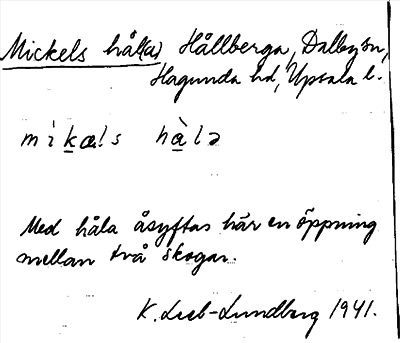 Mickels hål(a), Hållberga, Dalby sn,
Hagunda hd, Upsala l.
mìkæls hàlə
Med håla åsyftas här en öppning
mellan två skogar.
K. Leeb-Lundberg 1941.